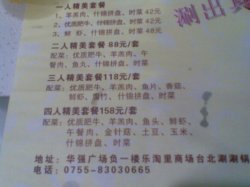 涮出真
一人精美套餐
1、羊羔肉、什锦拼盘、时菜 42元
2、优质肥牛、什锦拼盘、时菜 42元
3、鲜虾、什锦拼盘、时菜 48元
二人精美套餐 88元/套
配菜:优质肥牛、羊羔肉、午
餐肉、鱼丸、什锦拼盘、时菜
三人精美套餐118元/套
配菜:优质肥牛、羊羔肉、鱼片、香菇、
鲜虾、腐竹、什锦拼盘、时菜
四人精美套餐158元/套
配菜:优质肥牛、羊羔肉、鱼头、鲜虾、
午餐肉、金针菇、土豆、玉米、
什锦拼盘、时菜
地址:华强广场负一楼乐淘里商场台北涮涮锅
电话:0755-83030665